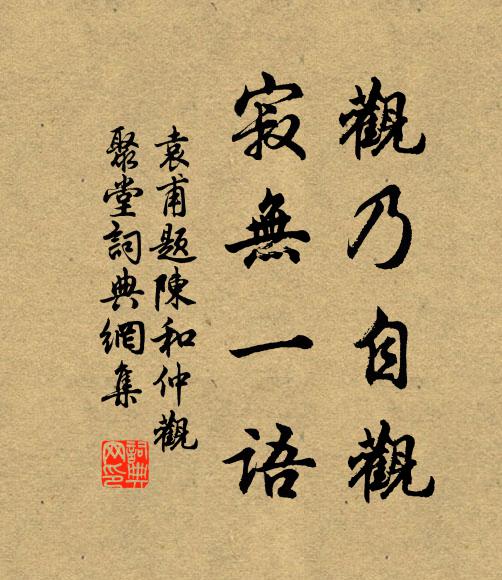 觀乃自觀
寂無一語
袁甫題陳和仲觀
聚堂詞典網集
詞典网印